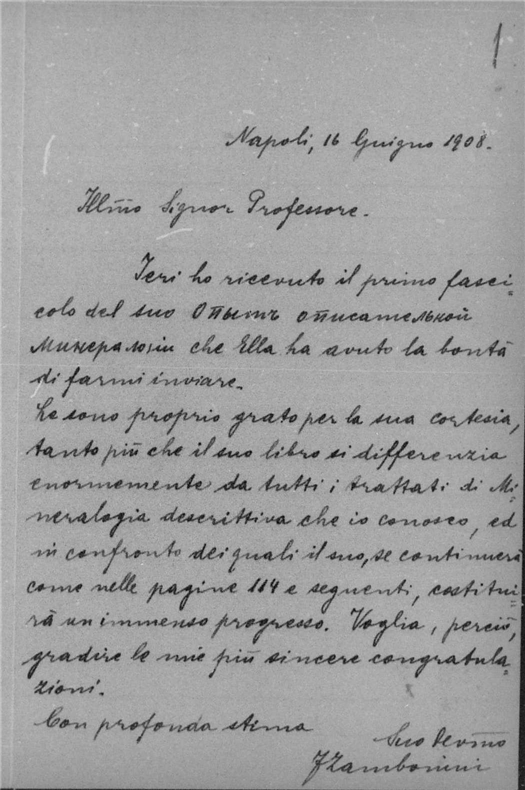 1
Napoli, 16 Giugno 1908.
Illmo Signor Professore.
Ieri ho ricevuto il primo fasci=
colo del suo Опытъ описательной
Минералогіи che Ella ha avuto la bontà
di farmi inviare.
Le sono proprio grato per la sua cortesia,
tanto più che il suo libro si differenzia
enormemente da tutti i trattati di Mi=
neralogia descrittiva che io conosco, ed
in confronto dei quali il suo, se continuerà
come nelle pagine 114 e seguenti, costitui=
rà un immenso progresso. Voglia, perciò,
gradire le mie più sincere congratula=
zioni.
Con profonda stima
Suo devmo
FZambonini